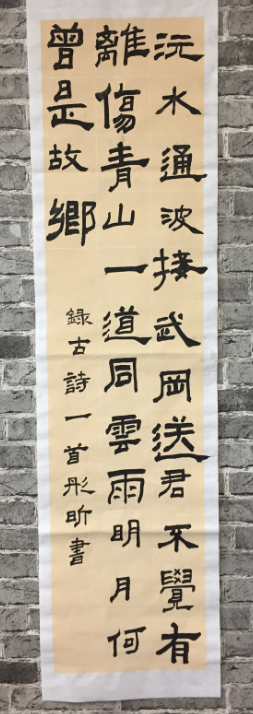 沅水通波接武岡送君不覺有
離傷青山一道同雲雨明月何
曾是故鄉
錄古詩一首彤昕書